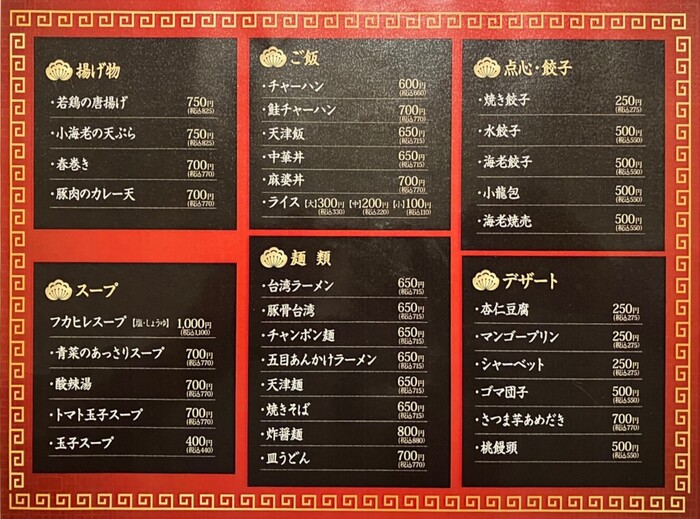 揚げ物
・若鶏の唐揚げ 750円 (税込825)
・小海老の天ぷら 750円 (税込825)
・春巻き 700円 (税込770)
・豚肉のカレー天 700円 (税込770)
スープ
フカヒレスープ【塩・しょうゆ】 1,000円 (税込1,100)
・青菜のあっさりスープ 700円 (税込770)
・酸辣湯 700円 (税込770)
・トマト玉子スープ 700円 (税込770)
・玉子スープ 400円 (税込440)
ご飯
・チャーハン 600円 (税込660)
・鮭チャーハン 700円 (税込770)
・天津飯 650円 (税込715)
・中華丼 650円 (税込715)
・麻婆丼 700円 (税込770)
・ライス【大】300円 (税込330)【中】200円 (税込220)【小】100円 (税込110)
麺類
・台湾ラーメン 650円 (税込715)
・豚骨台湾 650円 (税込715)
・チャンポン麺 650円 (税込715)
・五目あんかけラーメン 650円 (税込715)
・天津麺 650円 (税込715)
・焼きそば 650円 (税込715)
・炸醤麺 800円 (税込880)
・皿うどん 700円 (税込770)
点心・餃子
・焼き餃子 250円 (税込275)
・水餃子 500円 (税込550)
・海老餃子 500円 (税込550)
・小龍包 500円 (税込550)
・海老焼売 500円 (税込550)
デザート
・杏仁豆腐 250円 (税込275)
・マンゴープリン 250円 (税込275)
・シャーベット 250円 (税込275)
・ゴマ団子 500円 (税込550)
・さつま芋あめだき 700円 (税込770)
・桃饅頭 500円 (税込550)